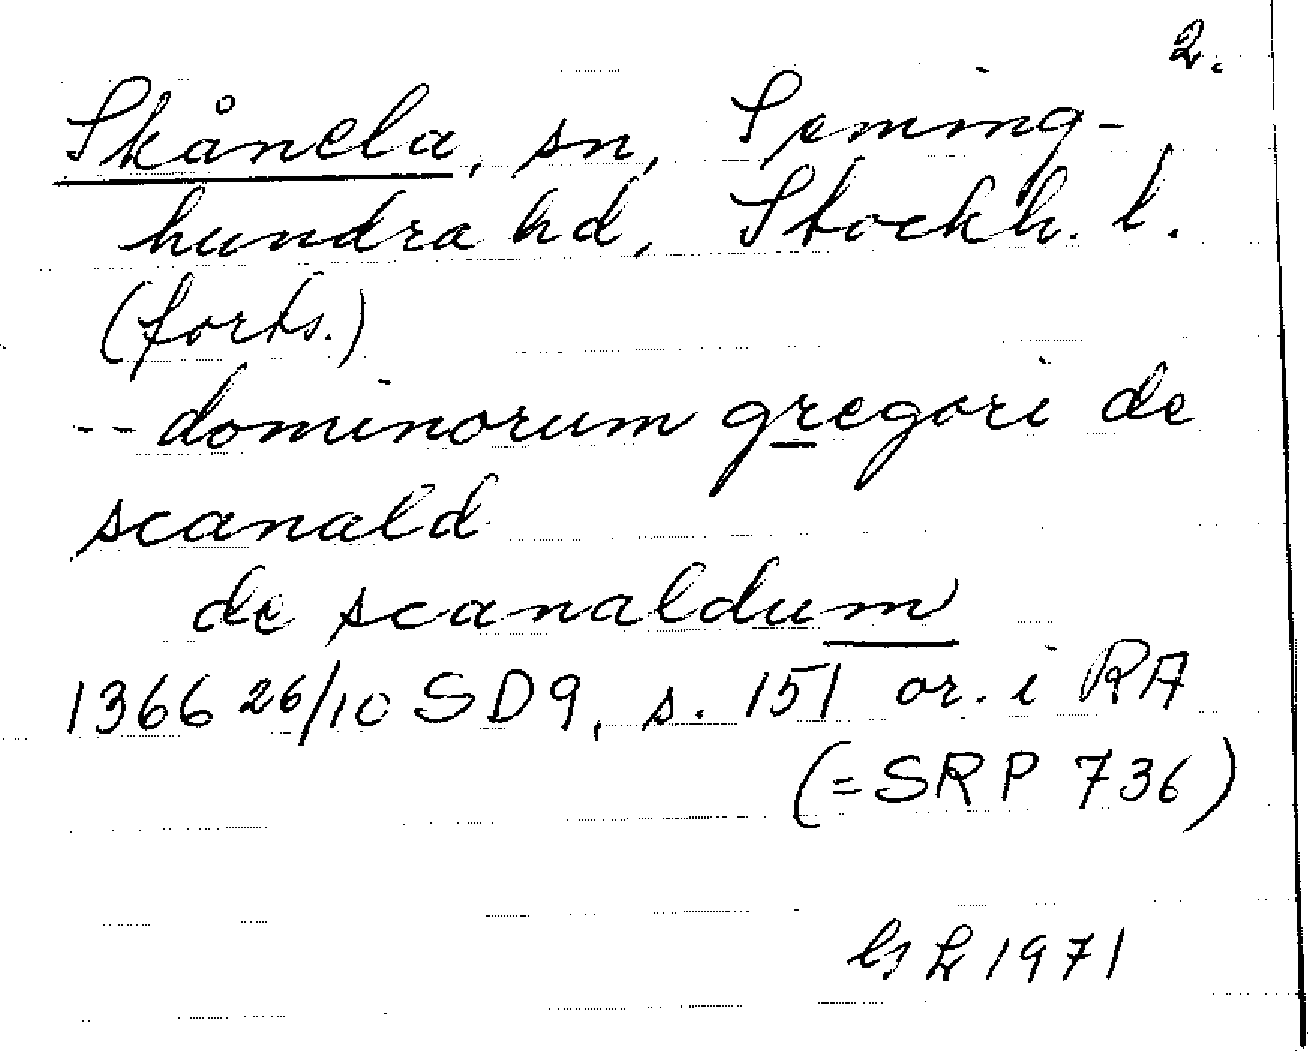 2.
Skånela, sn, Seming-
hundra hd, Stockh. l.
(forts.)
-- dominorum gregori de
scanald
de scanaldum
1366 26/10 SD9, s. 151 or. i RA
(=SRP 736)
1971